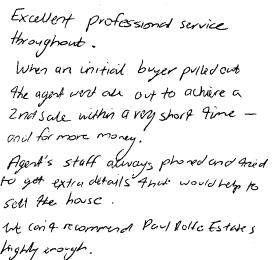 Excellent professional service
throughout.
When an initial buyer pulled out
the agent went all out to achieve a
2nd sale within a very short time –
and for more money.
Agent's staff always phoned and tried
to get extra details that would help to
sell the house.
We can't recommend Paul Rolfe Estates
highly enough.